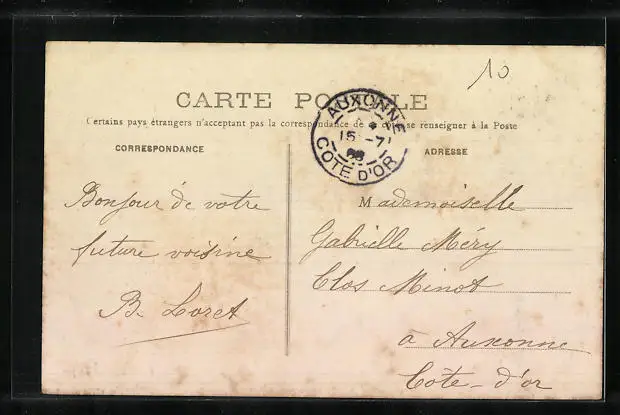 10
CARTE POSTALE
AUXONNE
15 -7
COTE D'OR
Certains pays étrangers n'acceptant pas la correspondance de se renseigner à la Poste
CORRESPONDANCE
ADRESSE
Bonjour de votre
future voisine
B. Loret
Mademoiselle
Gabrielle Méry
Clos Minot
à Auxonne
Côte-d'or